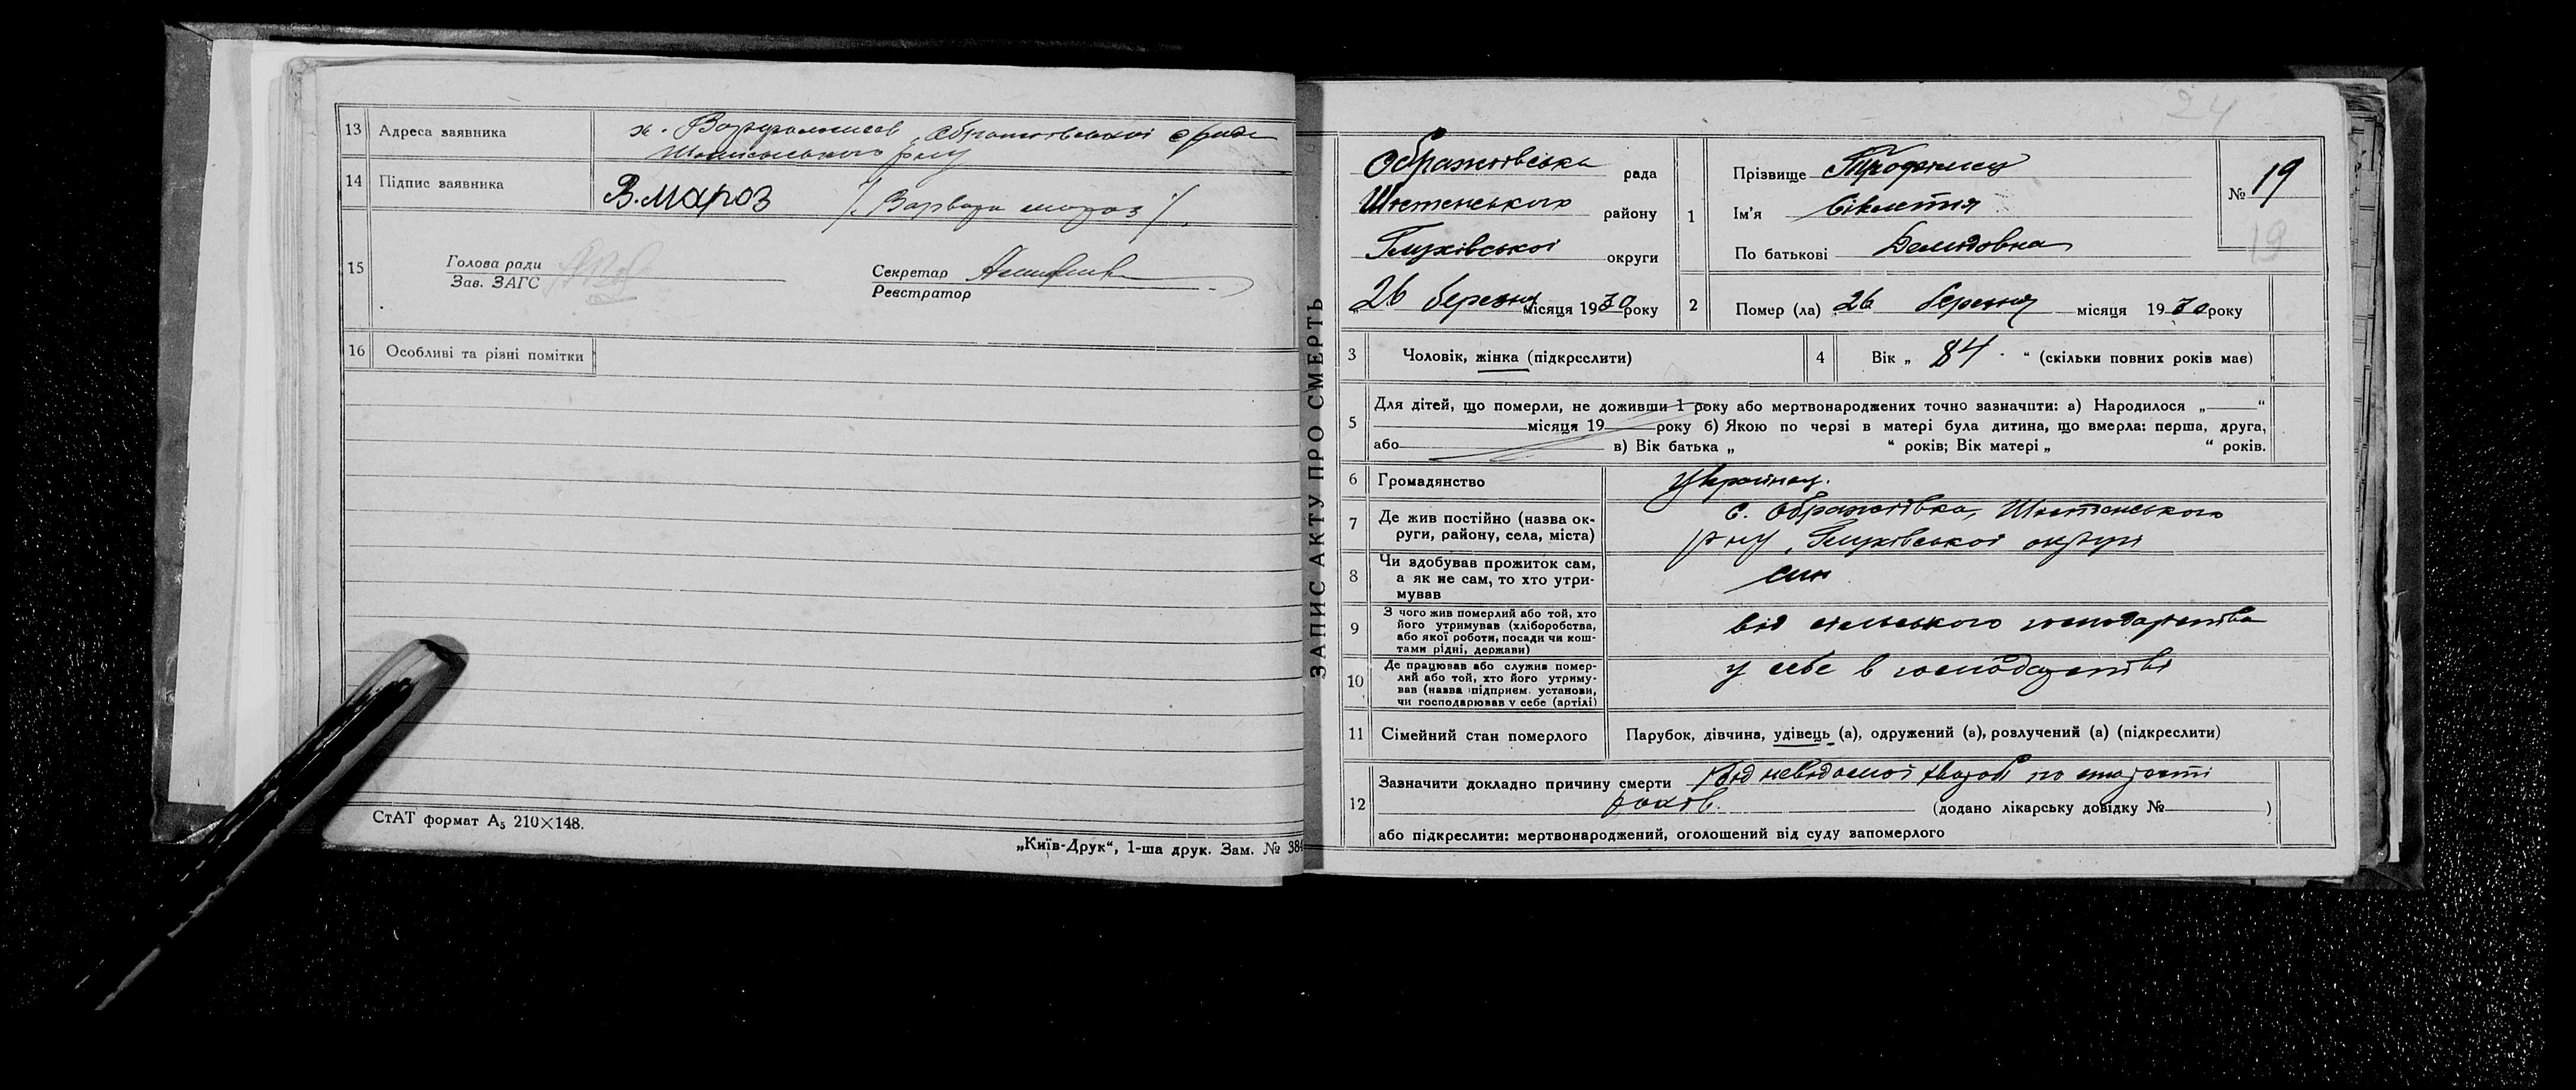 13 Адреса заявника
14 Підпис заявника В. Мароз /. Варвара мороз /.
15 Голова ради
Зав. ЗАГС
Секретар
Реєстратор
16 Особливі та різні помітки
СтАТ формат А₅ 210×148.
„Київ-Друк“, 1-ша друк. Зам. № 384
ЗАПИС АКТУ ПРО СМЕРТЬ
24
Ображіївська рада
Шостенського району
Глухівської округи
26 березня місяця 1930 року
1 Прізвище
Ім'я
По батькові Демидовна
№ 19
19
2 Помер (ла) 26 березня місяця 1930 року
3 Чоловік, жінка (підкреслити)
4 Вік „ 84 “ (скільки повних років має)
5 Для дітей, що померли, не доживши 1 року або мертвонароджених точно зазначити: а) Народилося „ “
місяця 19 року б) Якою по черзі в матері була дитина, що вмерла: перша, друга,
або в) Вік батька „ “ років; Вік матері „ “ років.
6 Громадянство
7 Де жив постійно (назва ок-
руги, району, села, міста)
с. Ображіївка, Шостенського
р-ну, Глухівської округи
8 Чи здобував прожиток сам,
а як не сам, то хто утри-
мував
син
9 З чого жив померлий або той, хто
його утримував (хліборобства,
або якої роботи, посади чи кош-
тами рідні, держави)
від сільського господарства
10 Де працював або служив помер-
лий або той, хто його утриму-
вав (назва підприєм. установи,
чи господарював у себе (артілі)
у себе в господарстві
11 Сімейний стан померлого Парубок, дівчина, удівець (а), одружений (а), розлучений (а) (підкреслити)
12 Зазначити докладно причину смерти від невідомої по старості
років. (додано лікарську довідку № )
або підкреслити: мертвонароджений, оголошений від суду запомерлого